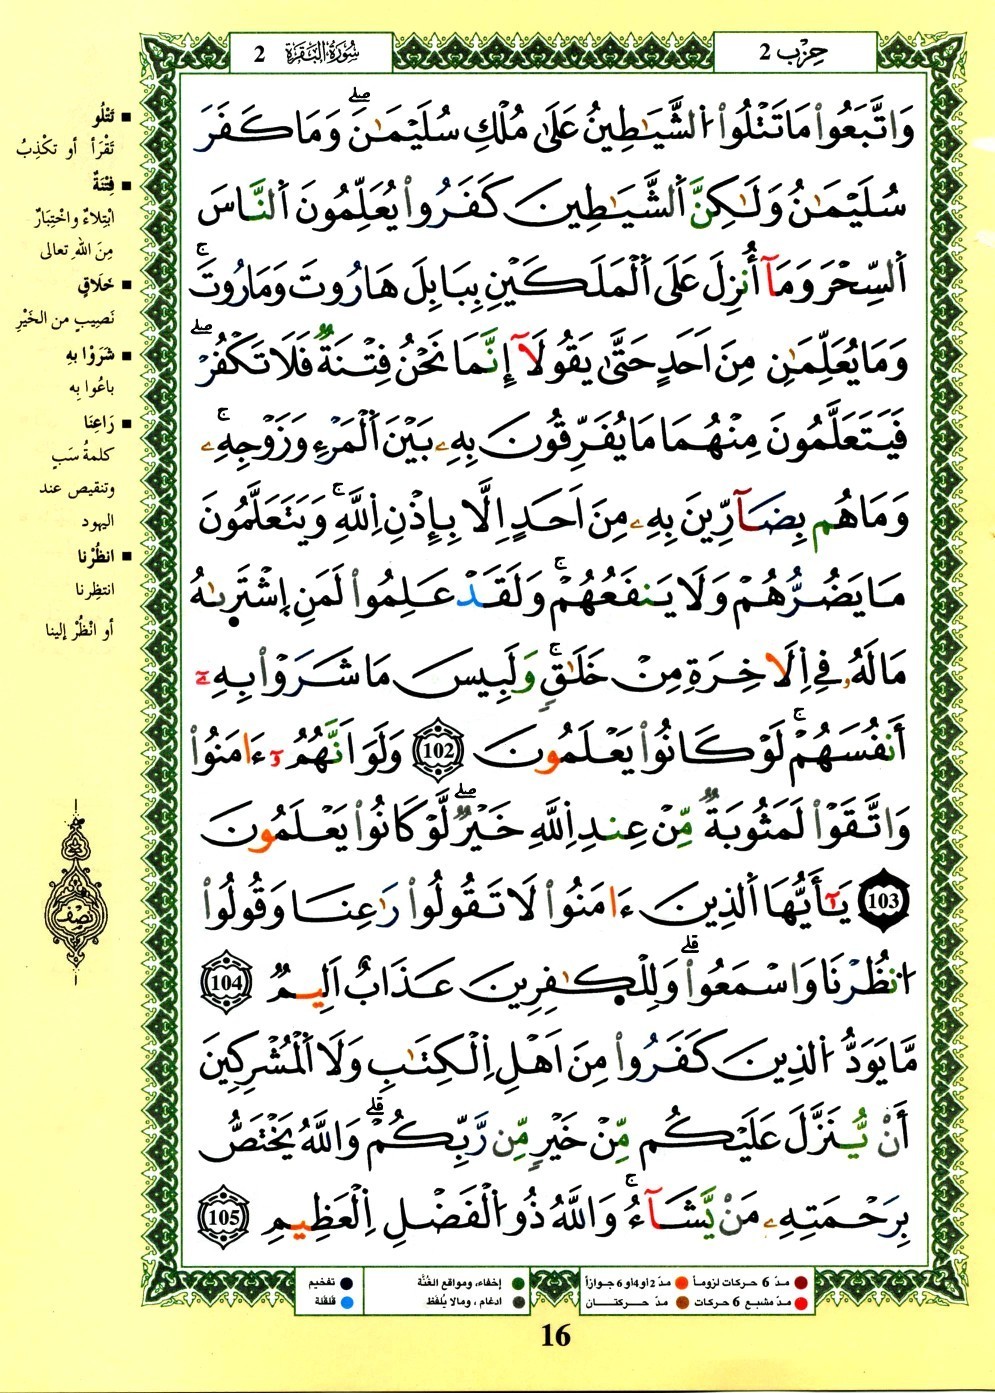 حِزْب 2
سُورَةُ البَقَرَة 2
وَاتَّبَعُواْ مَا تَتْلُواْ اُ۬لشَّيَٰطِينُ عَلَىٰ مُلْكِ سُلَيْمَٰنَۖ وَمَا كَفَرَ
سُلَيْمَٰنُ وَلَٰكِنَّ اَ۬لشَّيَٰطِينَ كَفَرُواْ يُعَلِّمُونَ اَ۬لنَّاسَ
اَ۬لسِّحْرَ وَمَآ أُنزِلَ عَلَى اَ۬لْمَلَكَيْنِ بِبَابِلَ هَارُوتَ وَمَارُوتَۚ
وَمَا يُعَلِّمَٰنِ مِنَ اَحَدٍ حَتَّىٰ يَقُولَآ إِنَّمَا نَحْنُ فِتْنَةٌ فَلَا تَكْفُرْۖ
فَيَتَعَلَّمُونَ مِنْهُمَا مَا يُفَرِّقُونَ بِهِۦ بَيْنَ اَ۬لْمَرْءِ وَزَوْجِهِۦۚ
وَمَا هُم بِضَآرِّينَ بِهِۦ مِنَ اَحَدٍ اِلَّا بِإِذْنِ اِ۬للَّهِۚ وَيَتَعَلَّمُونَ
مَا يَضُرُّهُمْ وَلَا يَنفَعُهُمْۚ وَلَقَدْ عَلِمُواْ لَمَنِ اِ۪شْتَر۪ىٰهُ
مَا لَهُۥ فِے اِ۬لَاخِرَةِ مِنْ خَلَٰقٍۚ وَلَبِيسَ مَا شَرَوْاْ بِهِۦٓ
أَنفُسَهُمْۚ لَوْ كَانُواْ يَعْلَمُونَ 102 وَلَوَ اَنَّهُمُۥٓ ءَامَنُواْ
وَاتَّقَوْاْ لَمَثُوبَةٌ مِّنْ عِندِ اِ۬للَّهِ خَيْرٌۖ لَّوْ كَانُواْ يَعْلَمُونَ
103 يَٰٓأَيُّهَا اَ۬لذِينَ ءَامَنُواْ لَا تَقُولُواْ رَٰعِنَا وَقُولُواْ
اُ۟نظُرْنَا وَاسْمَعُواْۗ وَلِلْكٰ۪فِرِينَ عَذَابٌ اَلِيمٌ 104
مَّا يَوَدُّ اُ۬لذِينَ كَفَرُواْ مِنَ اَهْلِ اِ۬لْكِتَٰبِ وَلَا اَ۬لْمُشْرِكِينَ
أَنْ يُّنَزَّلَ عَلَيْكُم مِّنْ خَيْرٍ مِّن رَّبِّكُمْۗ وَاللَّهُ يَخْتَصُّ
بِرَحْمَتِهِۦ مَنْ يَّشَآءُۚ وَاللَّهُ ذُو اُ۬لْفَضْلِ اِ۬لْعَظِيمِ 105
■ تَتْلُو
تَقْرَأ أو تكْذِبُ
■ فِتْنَةٌ
ابْتِلاءٌ واخْتِبَارٌ
مِنَ اللهِ تعالى
■ خَلَاقٍ
نَصِيبٍ من الخَيْرِ
■ شَرَوْا بِهِ
باعُوا بِه
■ رَاعِنَا
كلمةُ سَبٍ
وتنقيص عند
اليهود
■ انظُرْنا
انتظِرنا
أو انْظُرْ إلينا
نِصْف
مدّ 6 حركات لزوماً
مدّ 2 او 4 او 6 جوازاً
إخفاء، ومواقع الغُنَّة
تفخيم
مدّ مشبع 6 حركات
مدّ حركتان
ادغام، ومالا يُلفَظ
قلقلة
16